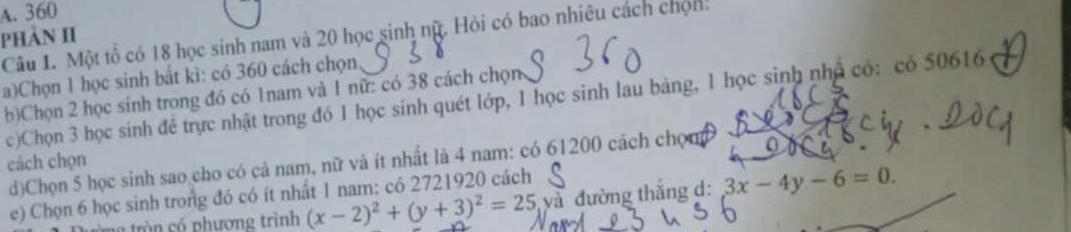 A. 360
PHẦN II
Câu 1. Một tổ có 18 học sinh nam và 20 học sinh nữ. Hỏi có bao nhiêu cách chọn:
a)Chọn 1 học sinh bất kì: có 360 cách chọn S 38
b)Chọn 2 học sinh trong đó có 1nam và 1 nữ: có 38 cách chọn S 360
c)Chọn 3 học sinh để trực nhật trong đó 1 học sinh quét lớp, 1 học sinh lau bảng, 1 học sinh nhổ cỏ: có 50616 Đ
cách chọn
d)Chọn 5 học sinh sao cho có cả nam, nữ và ít nhất là 4 nam: có 61200 cách chọn Đ 18C4 . 20C1
e) Chọn 6 học sinh trong đó có ít nhất 1 nam: có 2721920 cách S
tròn có phương trình (x − 2)² + (y + 3)² = 25 và đường thẳng d: 3x − 4y − 6 = 0.
Nam 1 2 3 4 5 6